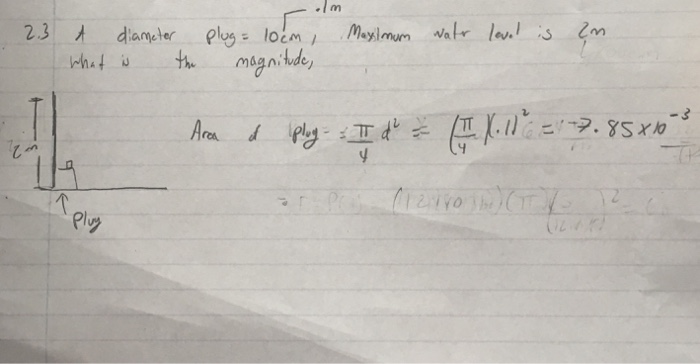 .1m
2.3 A diameter plug = 10cm, Maximum watr level is 2m
what is the magnitude,
2m
Area of plug = π/4 d² = (π/4)(.1)² = 7.85x10⁻³
Plug